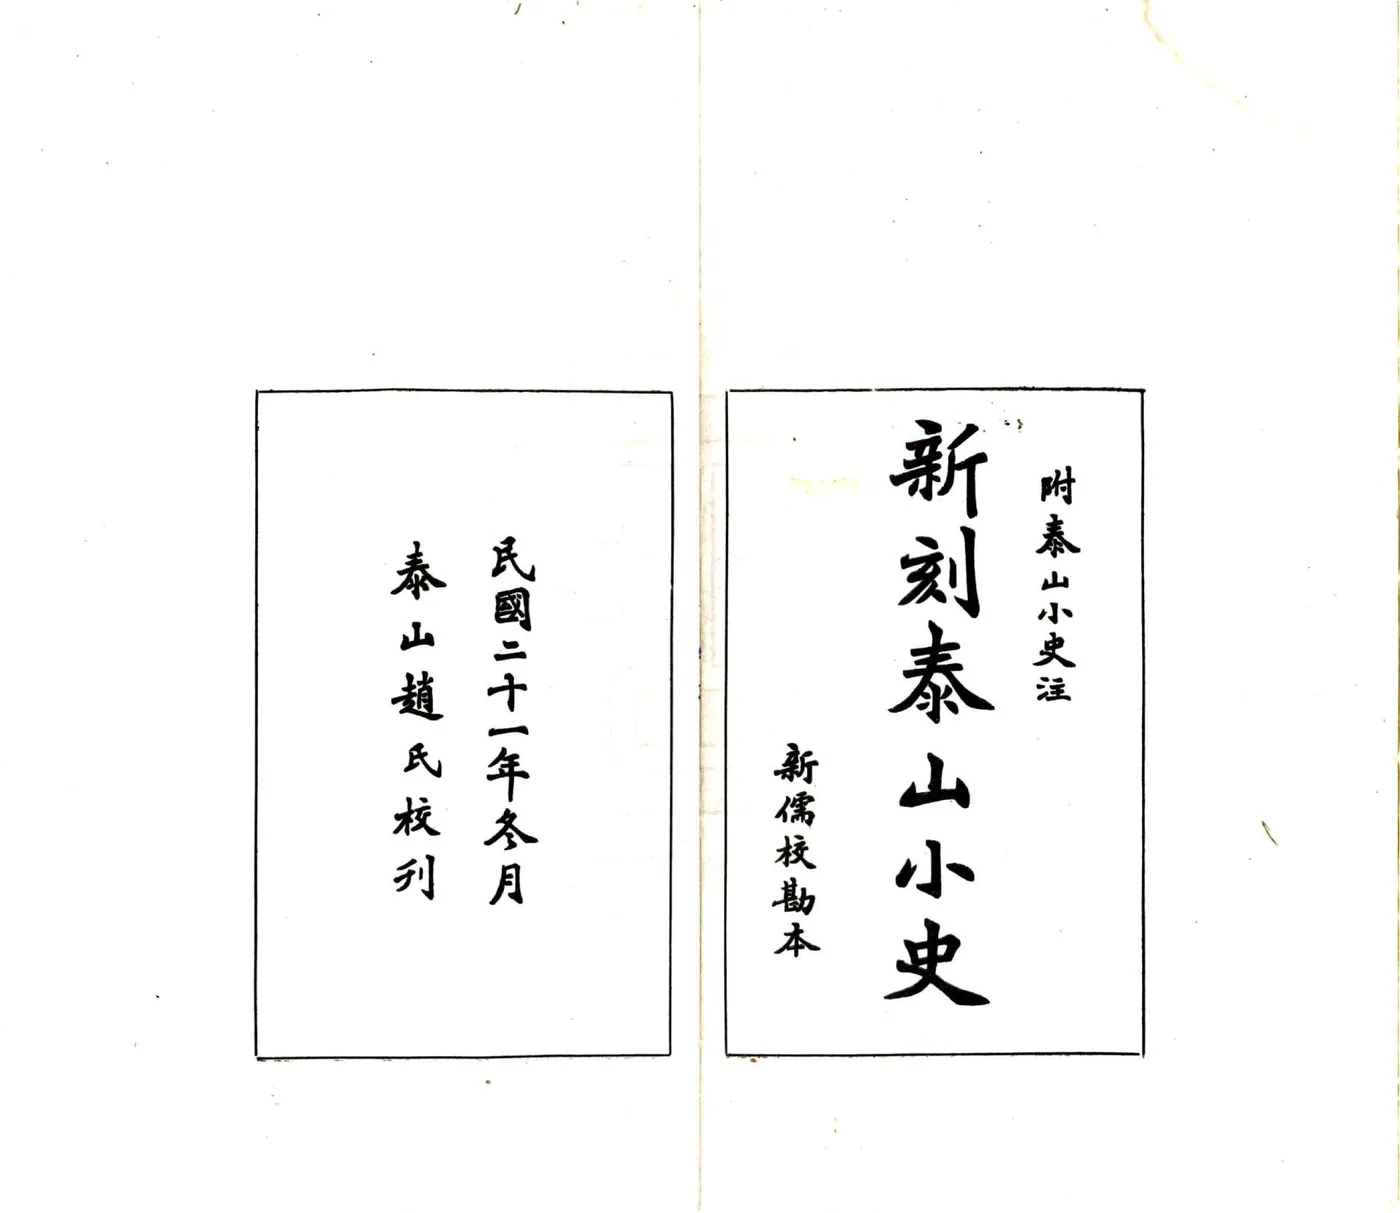 附泰山小史注
新刻泰山小史
新儒校勘本
民國二十一年冬月
泰山趙氏校刊